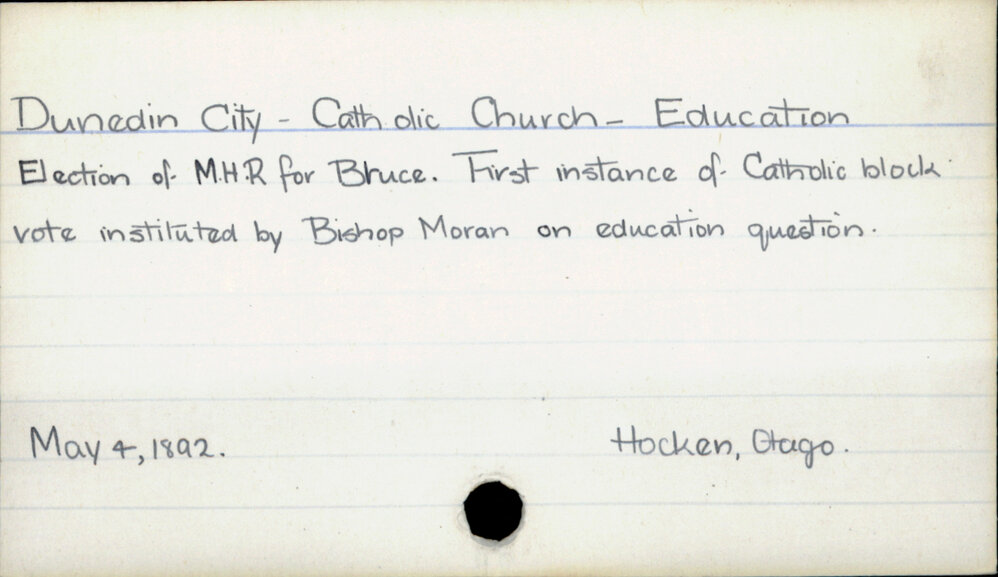 Dunedin City - Catholic Church - Education
Election of M.H.R for Bruce. First instance of Catholic block
vote instituted by Bishop Moran on education question.
May 4, 1892.
Hocken, Otago.